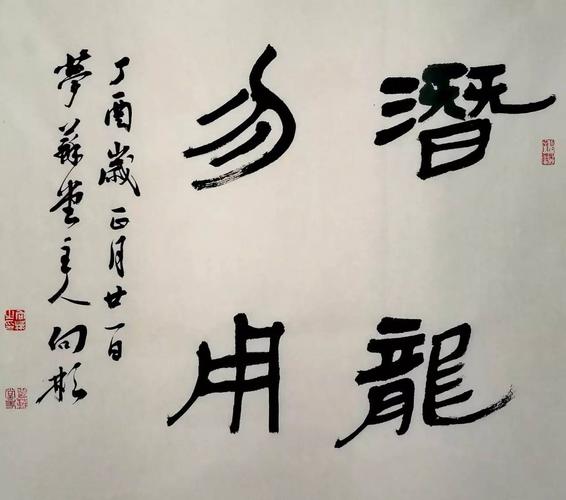 潛龍
勿用
丁酉歲正月廿一日
夢蘇堂主人向彬